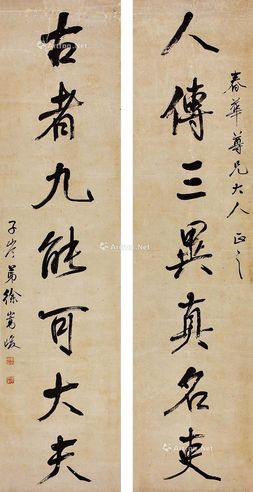 春華尊兄大人正之
人傳三異真名吏
古者九能可大夫
子岑弟徐嵩崚